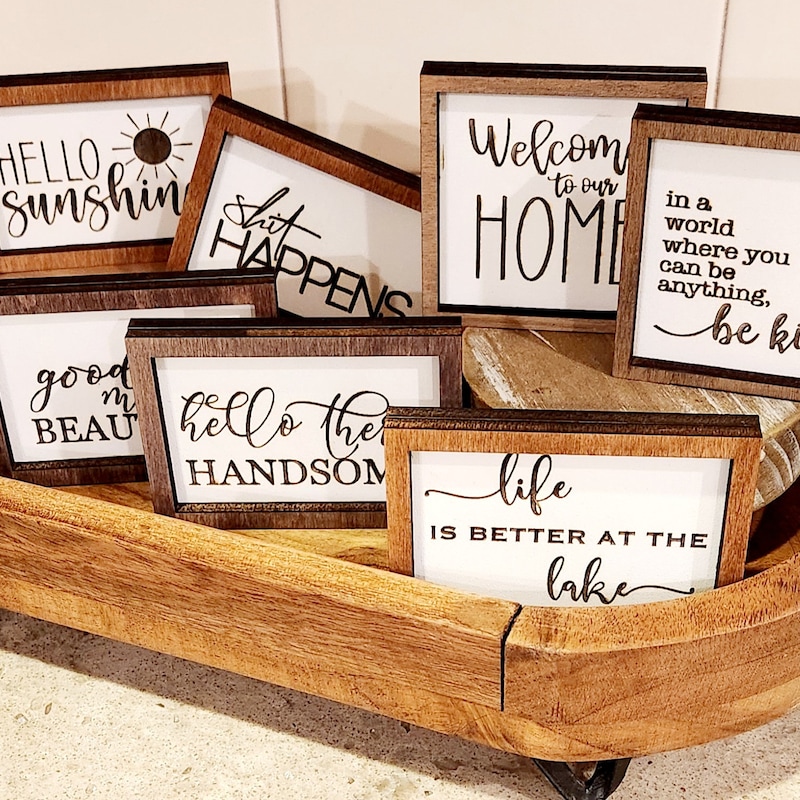 HELLO
sunshin
shit
HAPPENS
Welcom
to our
HOME
in a
world
where you
can be
anything,
be ki
good
m
BEAU
hello ther
HANDSOM
life
IS BETTER AT THE
lake